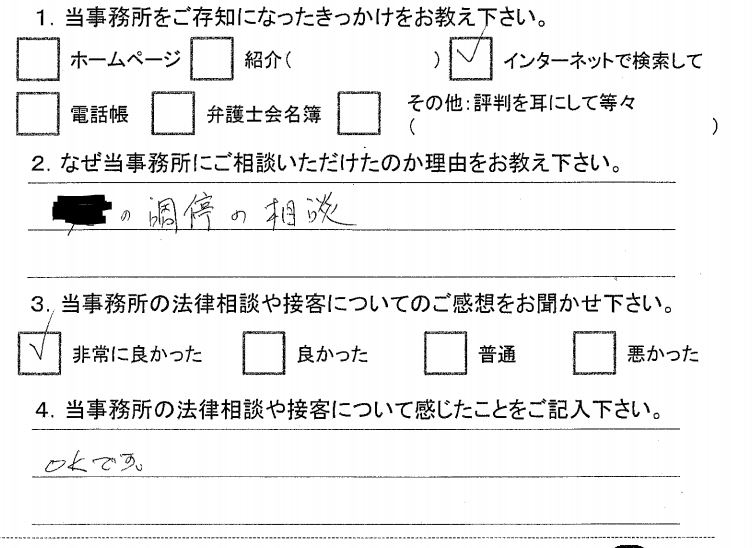 1. 当事務所をご存知になったきっかけをお教え下さい。
ホームページ 紹介( ) インターネットで検索して
電話帳 弁護士会名簿 その他:評判を耳にして等々
( )
2. なぜ当事務所にご相談いただけたのか理由をお教え下さい。
の調停の相談
3. 当事務所の法律相談や接客についてのご感想をお聞かせ下さい。
非常に良かった 良かった 普通 悪かった
4. 当事務所の法律相談や接客について感じたことをご記入下さい。
OKです。